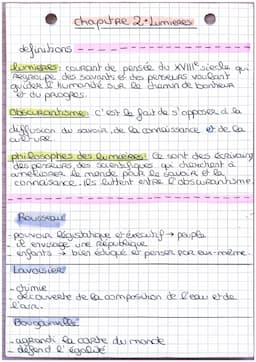 chapitre 2 • Lumières
définitions
Lumières: courant de pensée du XVIIIe siècle qui
regroupe des savants et des penseurs voulant
guider l'humanité sur le chemin du bonheur
et du progrès.
Obscurantisme: C'est le fait de s'opposer à la
diffusion du savoir, de la connaissance et de la
culture.
philosophes des lumières: Ce sont des écrivains
des penseurs des scientifiques qui cherchent à
améliorer le monde pour le savoir et la
connaissance. ils luttent entre l'obscurantisme.
Rousseau
- pouvoir législatique et éxecutif → peuple
- il envisage une république
- enfants → bien éduqué et penser par eux-même.
Lavoisier
- chimie
- découverte de la composition de l'eau et de
l'air.
Bougainville
- agrandi la carte du monde
- défend l'égalité